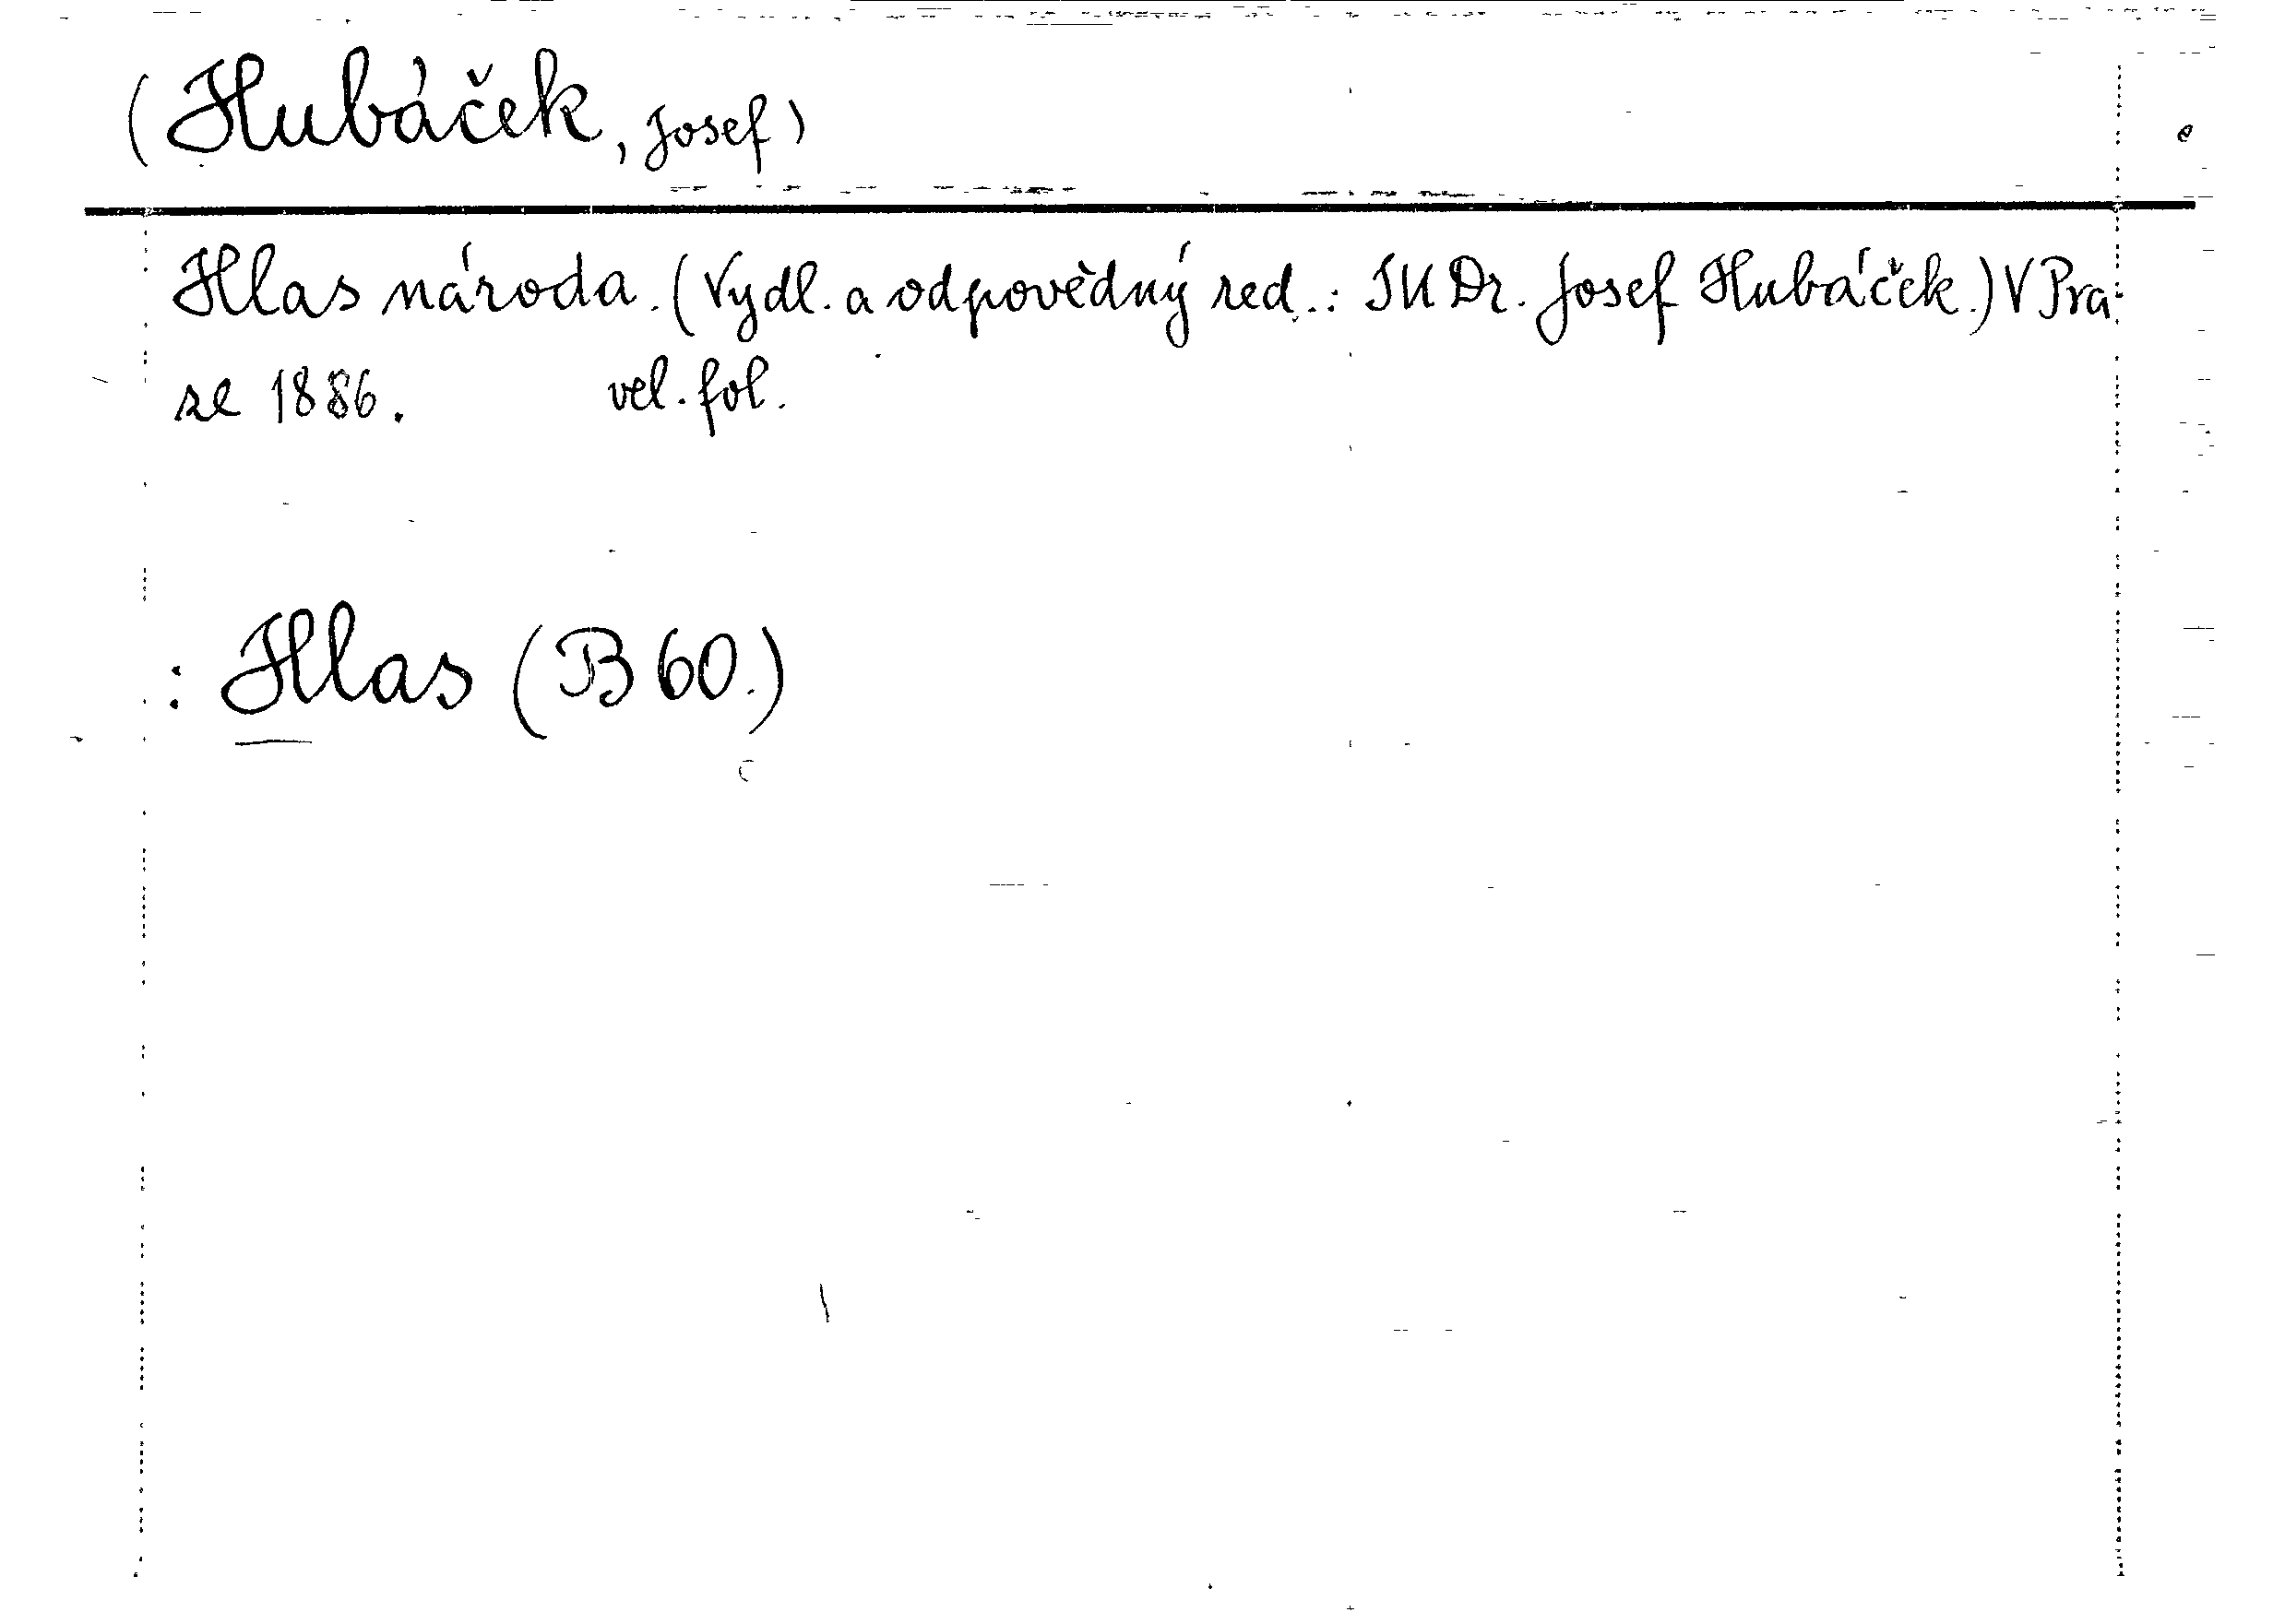 (Hubáček, Josef)
Hlas národa. (Vydl. a odpovědný red.: JUDr. Josef Hubáček.) V Pra-
ze 1886. vel. fol.
: Hlas (B 60.)